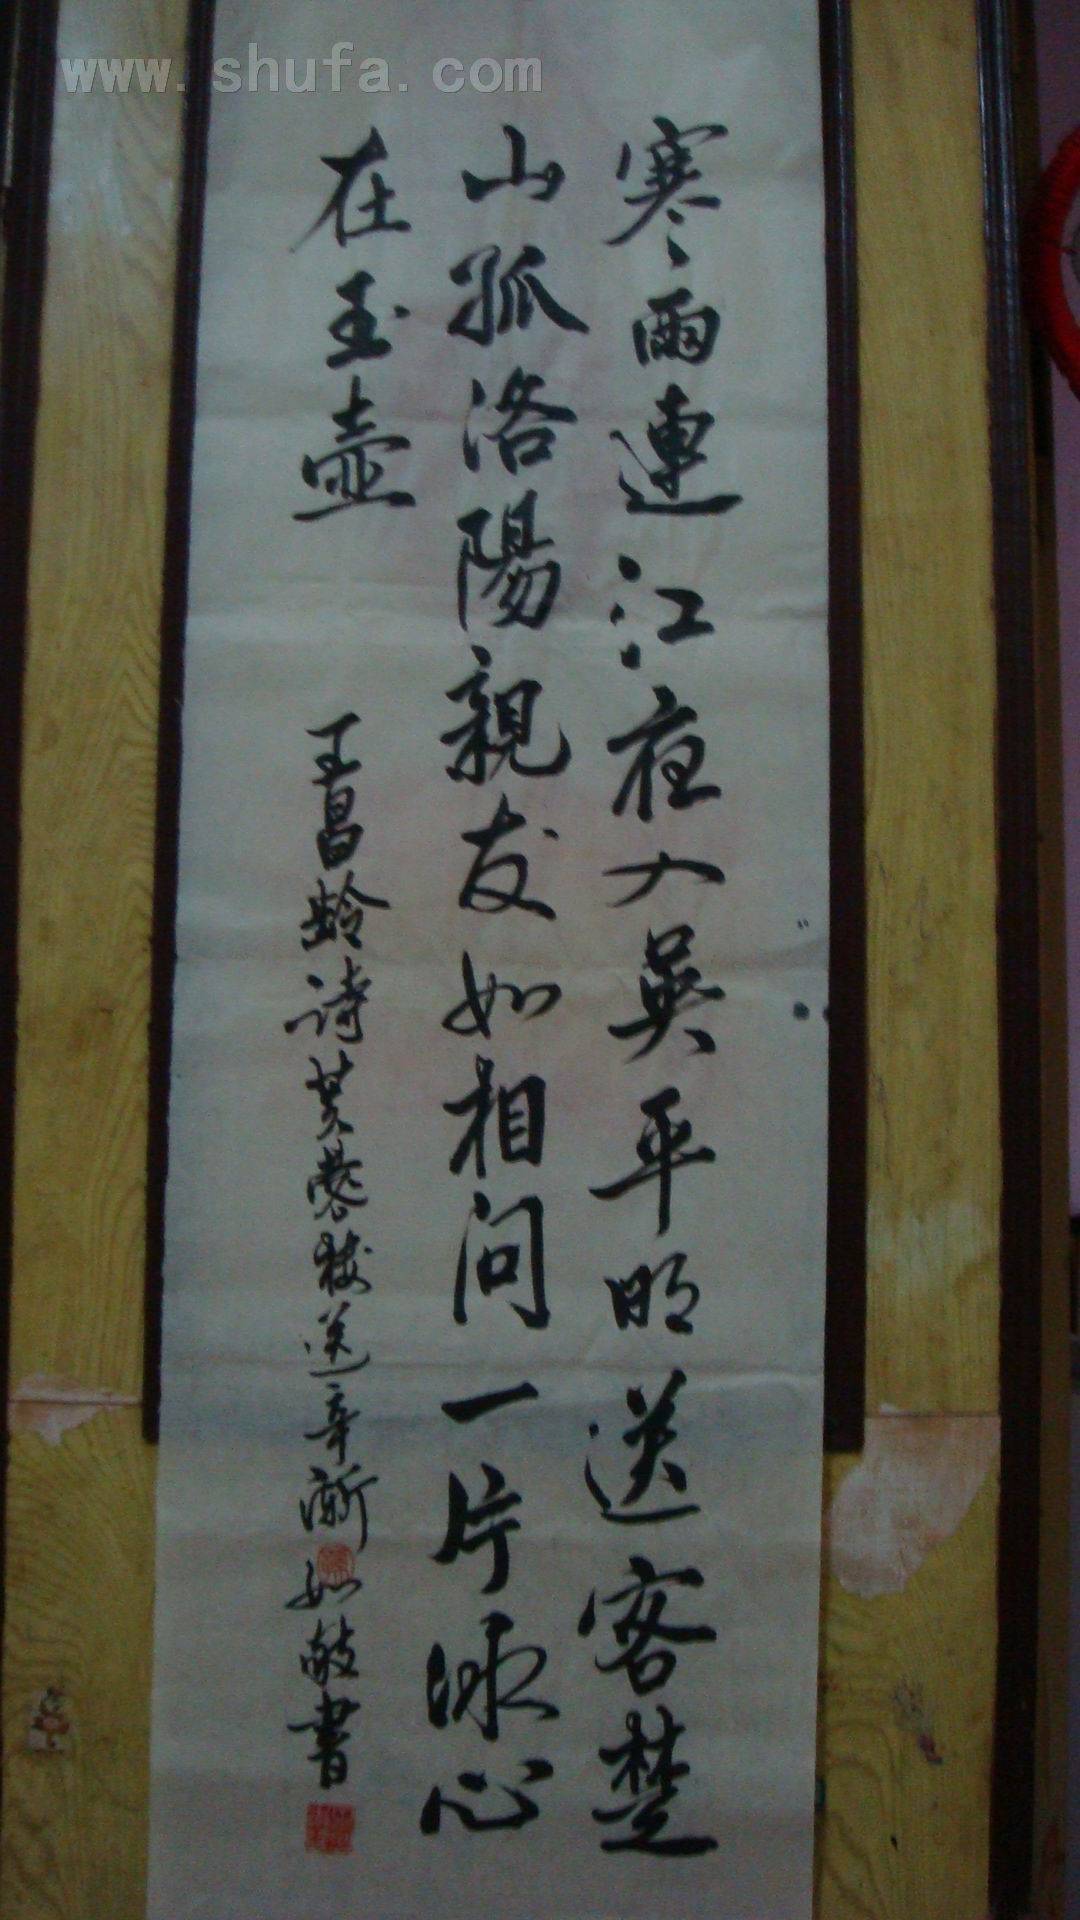 www.shufa.com
寒雨連江夜入吳平明送客楚
山孤洛陽親友如相问一片冰心
在玉壺
王昌龄诗芙蓉楼送辛渐 如敬書